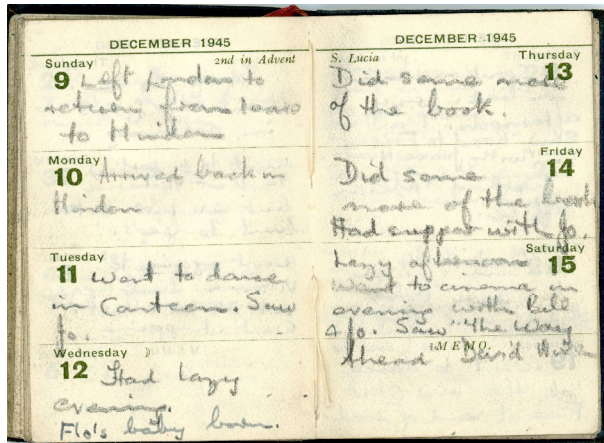 DECEMBER 1945
Sunday 2nd in Advent
9 Left London to
return from leave
to Minden
Monday
10 Arrived back in
Minden
Tuesday
11 Went to dance
in Canteen. Saw
Jo.
Wednesday
12 Had lazy
evening.
Flo's baby born.
DECEMBER 1945
S. Lucia Thursday
13
Did some more
of the book.
Friday
14
Did some
more of the book
Had supper with Jo.
Saturday
15
Lazy afternoon
Went to cinema in
evening with Bill
& Jo. Saw "The Way
MEMO.
Ahead David Niven